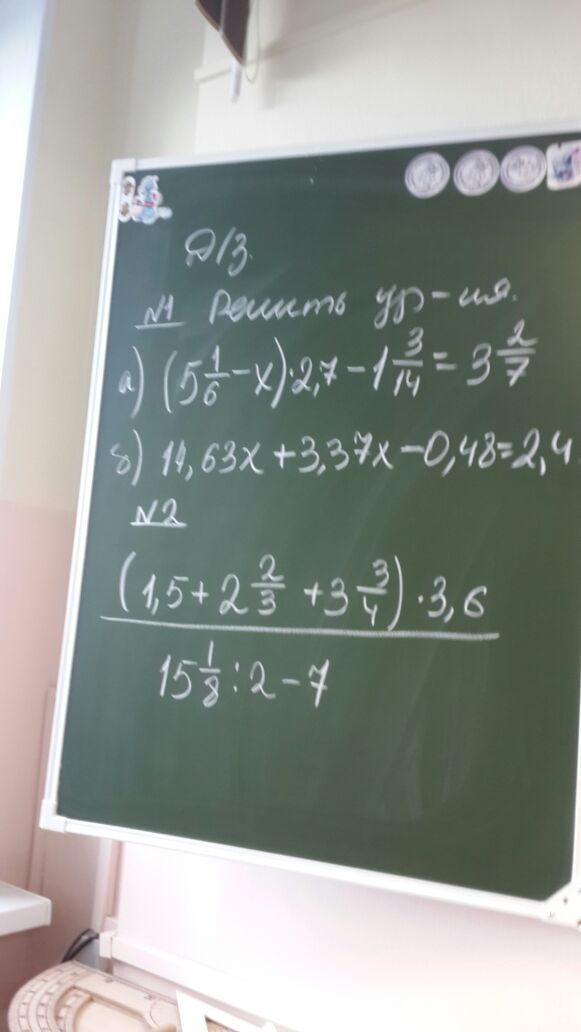 Д/З.
№1 Решить ур-ия.
а) (5 1/6 - x) · 2,7 - 1 3/14 = 3 2/7
б) 11,63x + 3,37x - 0,48 = 2,4
№2
(1,5 + 2 2/3 + 3 3/4) · 3,6
15 1/8 : 2 - 7